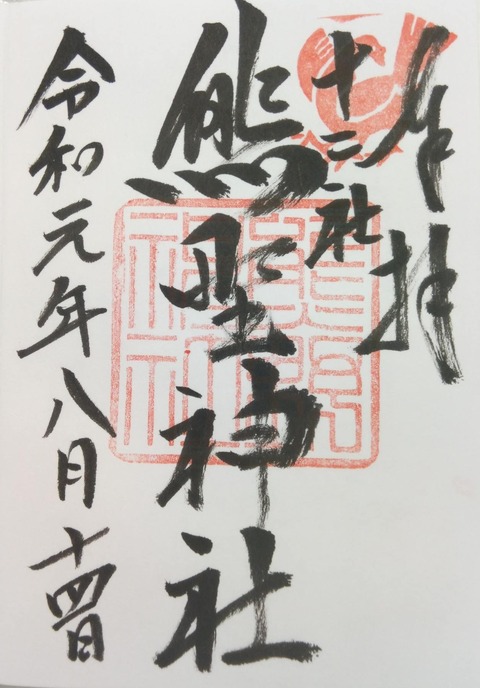 奉拝
十二社
熊野神社
令和元年八月十四日
熊野神社